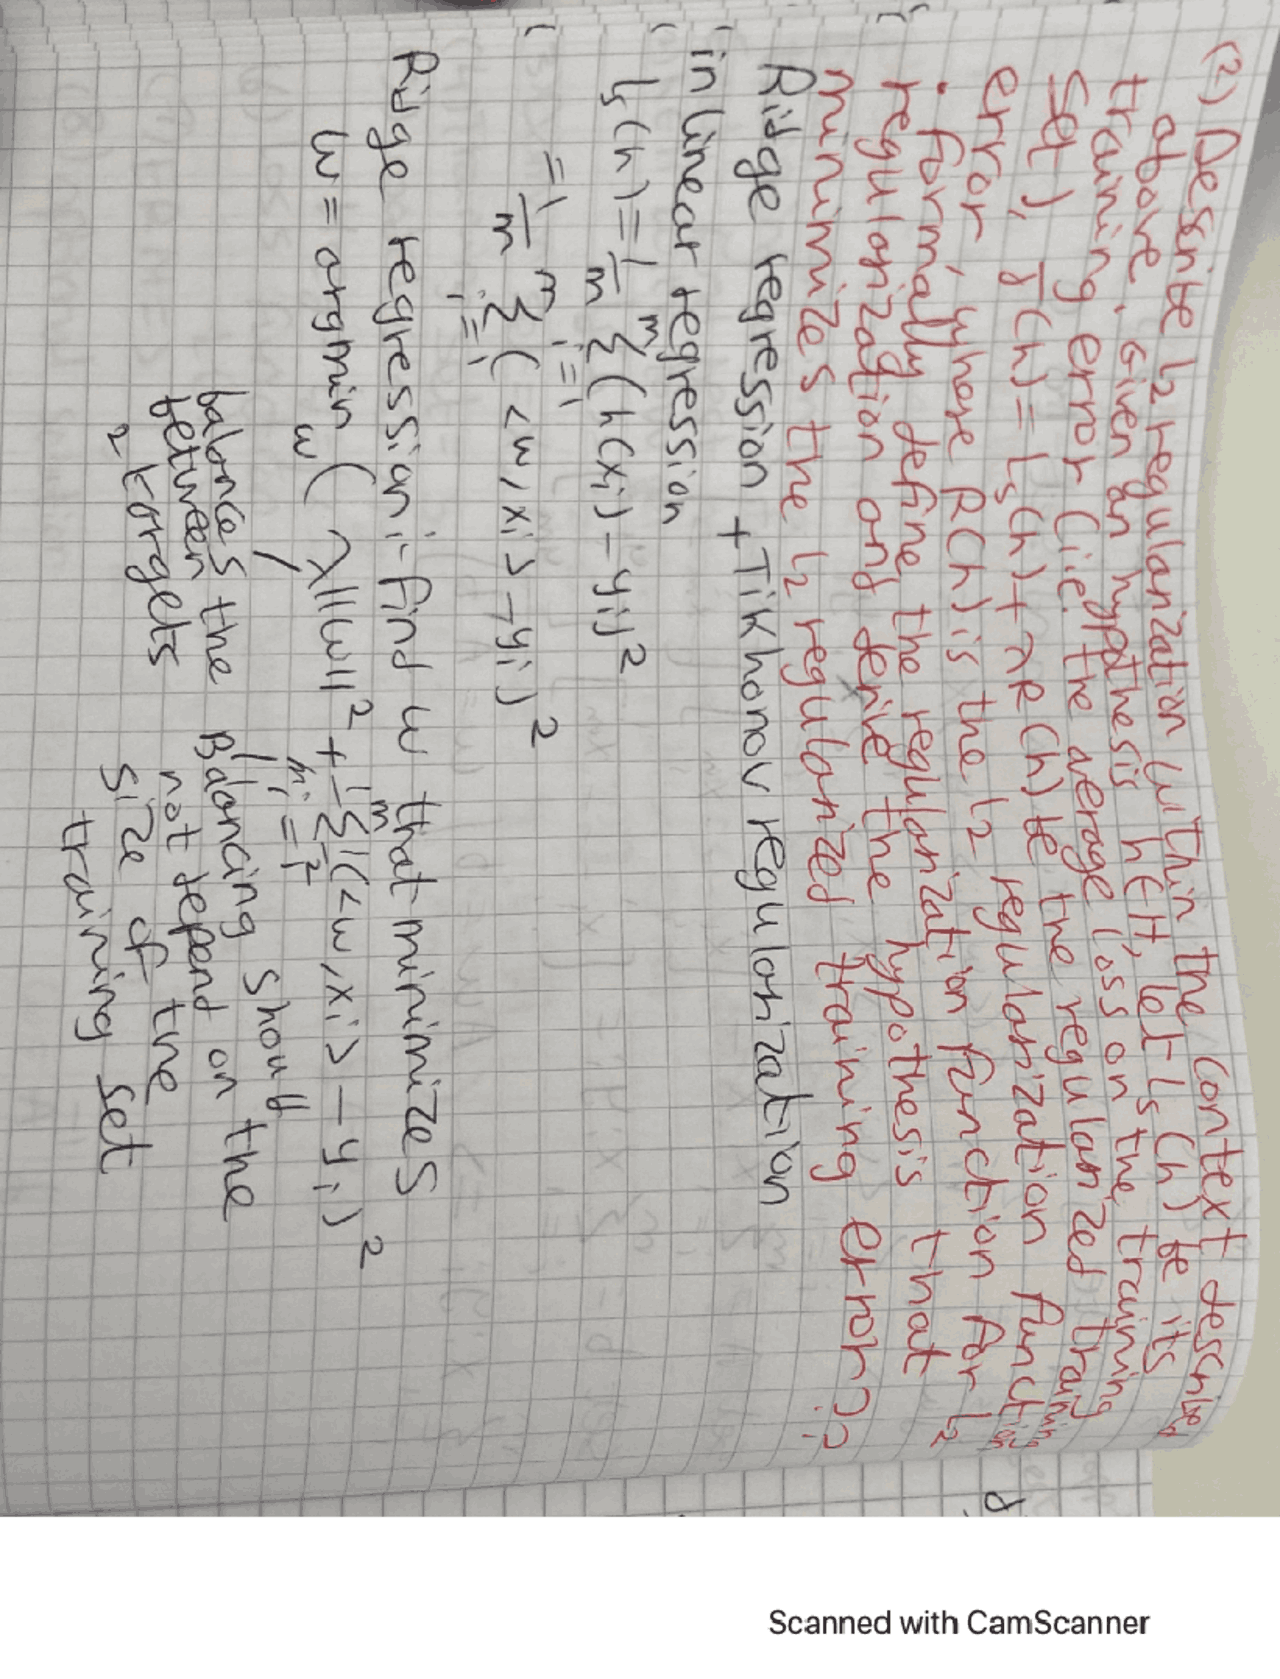 (2) Describe L2 regularization within the context described
above. Given an hypothesis h∈H, let Ls(h) be its
training error (i.e. the average loss on the training
set), J(h) = Ls(h) + λR(h) be the regularized training
error, where R(h) is the L2 regularization function
. formally define the regularization function for L2
regularization and derive the hypothesis that
minimizes the L2 regularized training error)?
Ridge regression + Tikhonov regularization
in linear regression
Ls(h) = 1/m Σ i=1 m (h(xi) - yi)²
= 1/m Σ i=1 m (<w, xi> - yi)²
Ridge regression :- find w that minimizes
w = argmin w ( λ||w||² + 1/m Σ i=1 m 1/2 (<w, xi> - yi)²
balances the
between
2 targets
Balancing should
not depend on the
size of the
training set